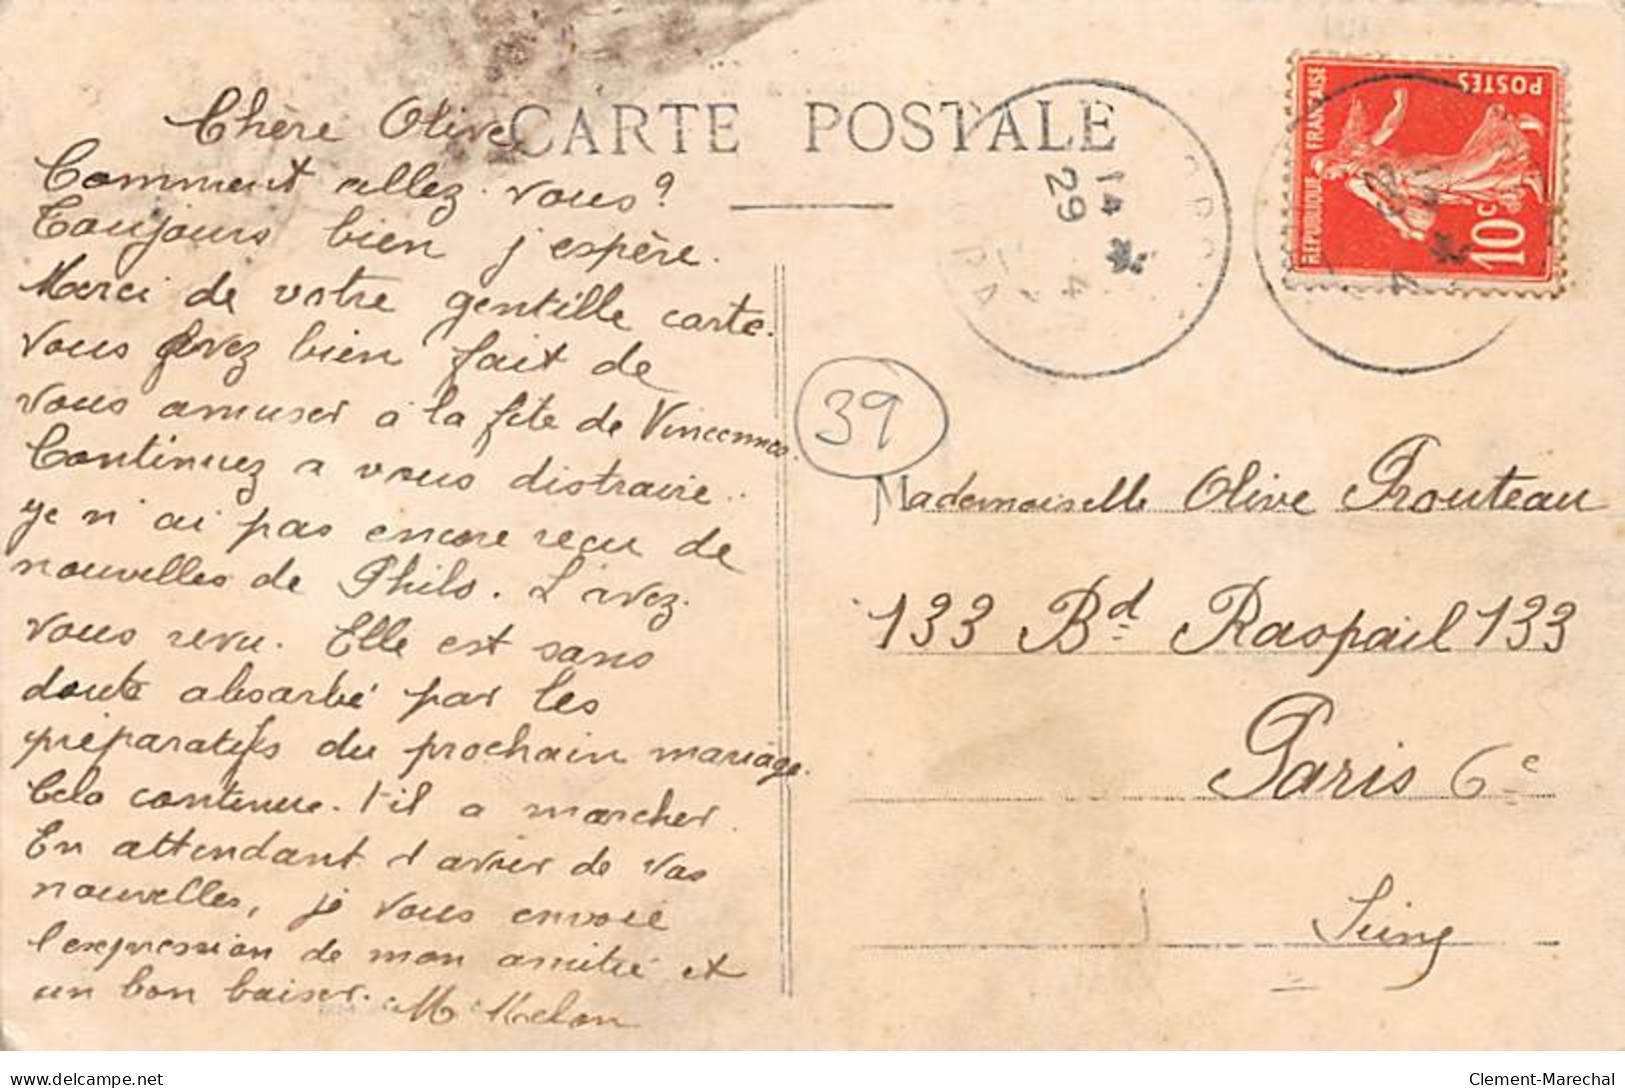 CARTE POSTALE
Chère Olive
Comment allez-vous?
Toujours bien j'espère.
Merci de votre gentille carte.
Vous avez bien fait de
vous amuser à la fête de Vincennes.
Continuez a vous distraire.
je n'ai pas encore reçu de
nouvelles de Philo. L'avez-
vous revu. Elle est sans
doute absorbé par les
préparatifs du prochain mariage.
Cela continue-t-il a marcher.
En attendant d'avoir de vos
nouvelles, je vous envoie
l'expression de mon amitié et
un bon baiser. M
39
14 *
29
4
RÉPUBLIQUE FRANÇAISE
POSTES
10c
Mademoiselle Olive Prouteau
133 Bd Raspail 133
Paris 6e
Seine
delcampe.net
Clement-Marechal